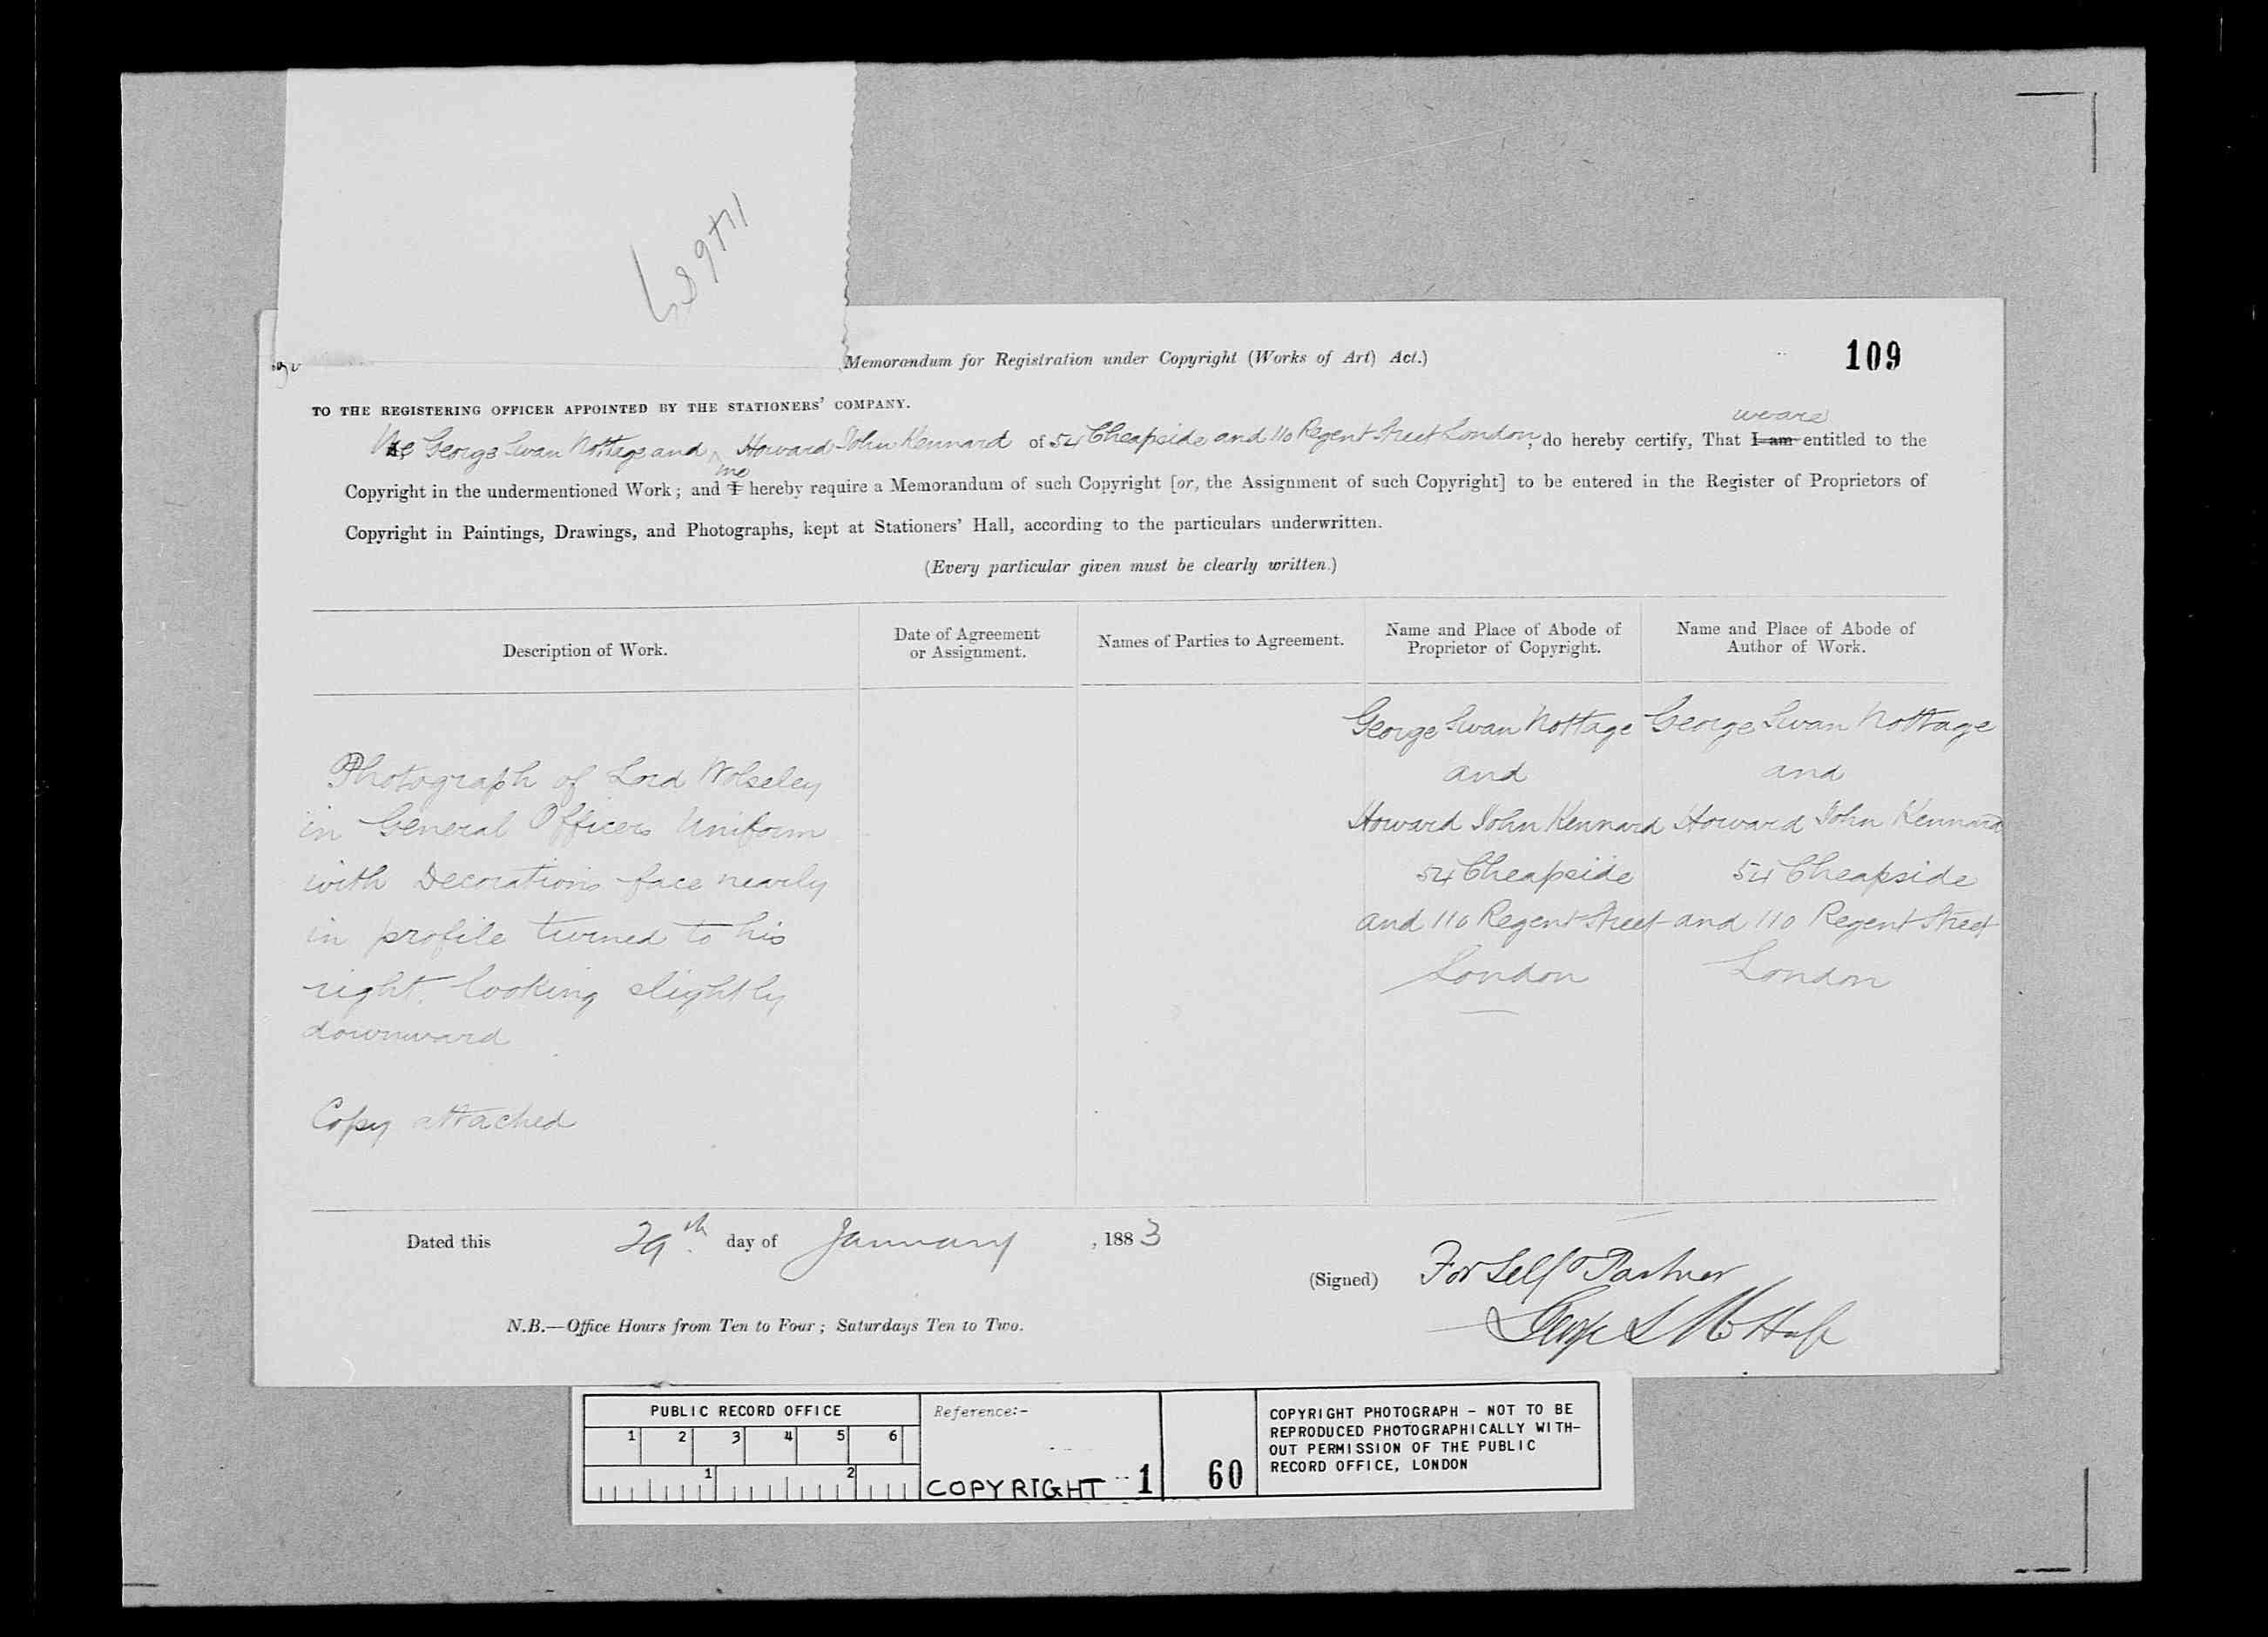 Memorandum for Registration under Copyright (Works of Art) Act.)
109
TO THE REGISTERING OFFICER APPOINTED BY THE STATIONERS' COMPANY.
we are
We George Swan Nottage and Howard John Kennard of 54 Cheapside and 110 Regent Street London, do hereby certify, That I am entitled to the
Copyright in the undermentioned Work; and I hereby require a Memorandum of such Copyright [or, the Assignment of such Copyright] to be entered in the Register of Proprietors of
Copyright in Paintings, Drawings, and Photographs, kept at Stationers' Hall, according to the particulars underwritten.
(Every particular given must be clearly written.)
Description of Work.
Date of Agreement
or Assignment.
Names of Parties to Agreement.
Name and Place of Abode of
Proprietor of Copyright.
Name and Place of Abode of
Author of Work.
Photograph of Lord Wolseley
in General Officers Uniform
with Decorations face nearly
in profile turned to his
right looking slightly
downward
Copy attached
George Swan Nottage
and
Howard John Kennard
54 Cheapside
and 110 Regent Street
London
George Swan Nottage
and
Howard John Kennard
54 Cheapside
and 110 Regent Street
London
Dated this 29th day of January, 1883
(Signed) For Self & Partner
George S Nottage
N.B.—Office Hours from Ten to Four; Saturdays Ten to Two.
PUBLIC RECORD OFFICE
1 2 3 4 5 6
1 2
Reference:-
COPYRIGHT 1 60
COPYRIGHT PHOTOGRAPH - NOT TO BE
REPRODUCED PHOTOGRAPHICALLY WITH-
OUT PERMISSION OF THE PUBLIC
RECORD OFFICE, LONDON